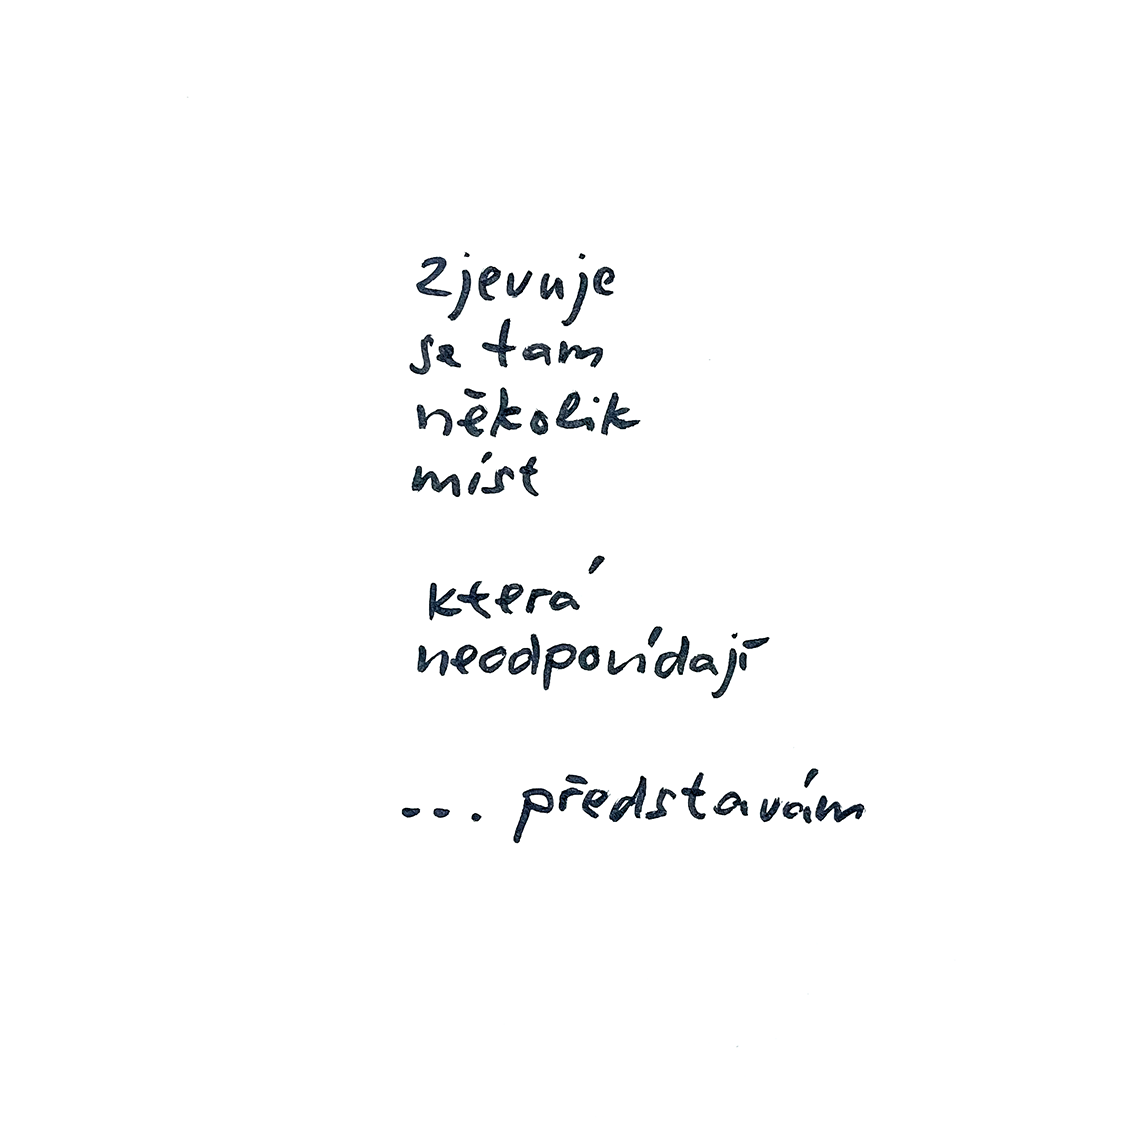 Zjevuje
se tam
několik
míst
která
neodpovídají
... představám